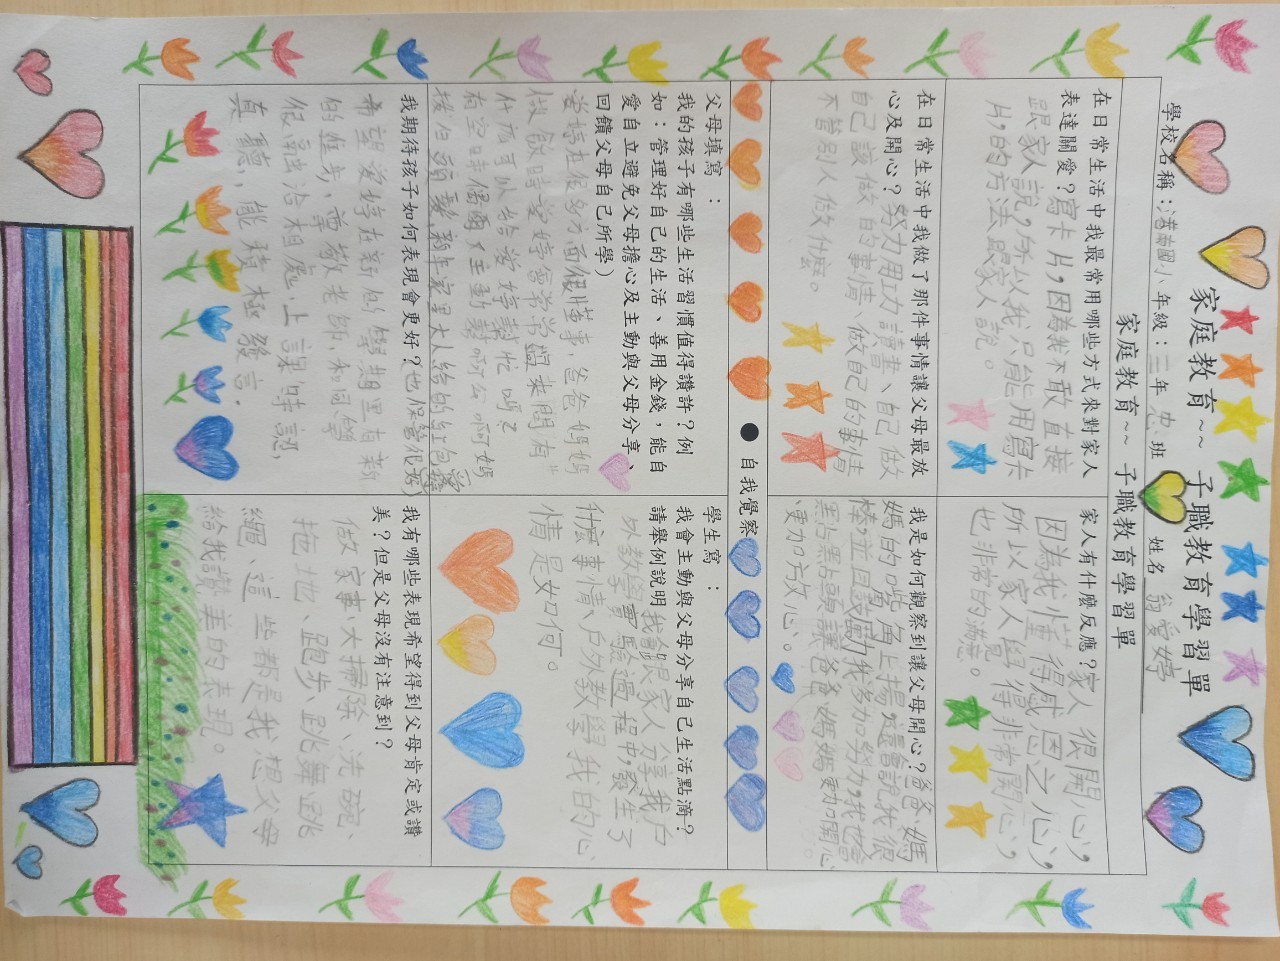 家庭教育~~ 子職教育學習單
學校名稱：港南國小、年級：三年 忠 班 姓名 翁愛婷
家庭教育~~ 子職教育學習單
在日常生活中我最常用哪些方式來對家人
表達關愛？寫卡片，因為我不敢直接
跟家人說，所以我只能用寫卡
片，的方法跟家人說。
家人有什麼反應？家人很開心，
因為我懂得感恩之心，
所以家人覺得非常開心，
也非常的滿意。
在日常生活中我做了那件事情讓父母最放
心及開心？努力用功讀書、自己做
自己該做的事情、做自己的事情
不管別人做什麼。
我是如何觀察到讓父母開心？爸爸、媽
媽的嘴角上揚，還會說我很
棒，並且鼓勵我多加努力，我也會
默默點頭讓爸爸、媽媽更加開心
、更加放心。
● 自我覺察
父母填寫：
我的孩子有哪些生活習慣值得讚許？例
如：管理好自己的生活、善用金錢，能自
愛自立避免父母擔心及主動與父母分享、
回饋父母自己所學）
愛婷在很多方面很懂事，爸爸媽媽
做飯時愛婷會常常過來問有
什麼可以給愛婷幫忙嗎？
有空時偶爾會主動幫阿
我期待孩子如何表現會更好？
希望愛婷在新的學期里有新
的進步，尊敬老師，和同學
很融洽相處，上課時認
真聽，能積極發言。
學生寫：
我會主動與父母分享自己生活點滴？
請舉例說明 我會跟家人分享我戶
外教學實際過程中，發生了
什麼事情、戶外教學我的心
情是如何。
我有哪些表現希望得到父母肯定或讚
美？但是父母沒有注意到？
做家事、大掃除、洗碗、
拖地、跑步、跳舞、跳
繩、這些都是我想父母
給我讚美的表現。